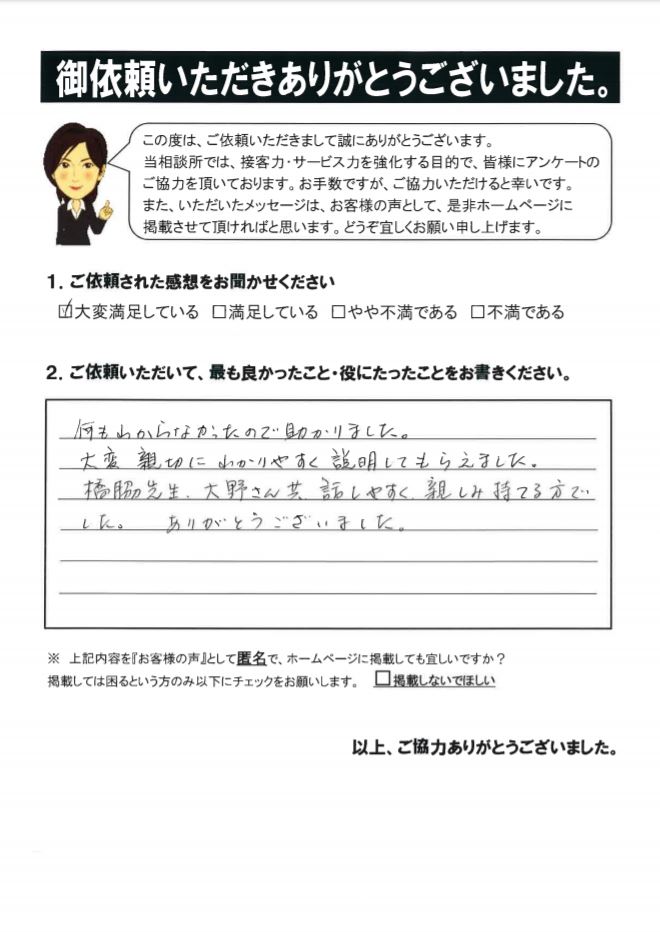 御依頼いただきありがとうございました。
この度は、ご依頼いただきまして誠にありがとうございます。
当相談所では、接客力・サービス力を強化する目的で、皆様にアンケートの
ご協力を頂いております。お手数ですが、ご協力いただけると幸いです。
また、いただいたメッセージは、お客様の声として、是非ホームページに
掲載させて頂ければと思います。どうぞ宜しくお願い申し上げます。
1. ご依頼された感想をお聞かせください
☑大変満足している □満足している □やや不満である □不満である
2. ご依頼いただいて、最も良かったこと・役にたったことをお書きください。
何もわからなかったので助かりました。
大変 親切に わかりやすく 説明してもらえました。
橋脇先生、大野さん共 話しやすく、親しみ持てる方で
した。 ありがとうございました。
※ 上記内容を『お客様の声』として匿名で、ホームページに掲載しても宜しいですか？
掲載しては困るという方のみ以下にチェックをお願いします。 □掲載しないでほしい
以上、ご協力ありがとうございました。